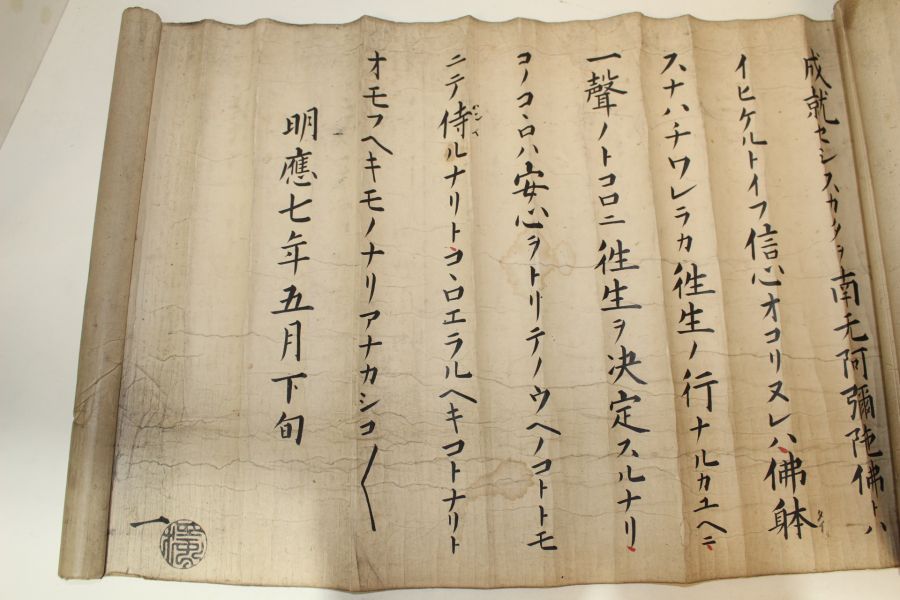 成就セシスカタヲ南无阿彌陁佛トハ
イヒケルトイフ信心オコリヌレハ佛躰
スナハチワレラカ徃生ノ行ナルカユヘニ
一聲ノトコロニ徃生ヲ决定スルナリ
コノコヽロハ安心ヲトリテノウヘノコトトモ
ニテ侍ルナリトコヽロエラルヘキコトナリト
オモフヘキモノナリアナカシコ〱
明應七年五月下旬
一